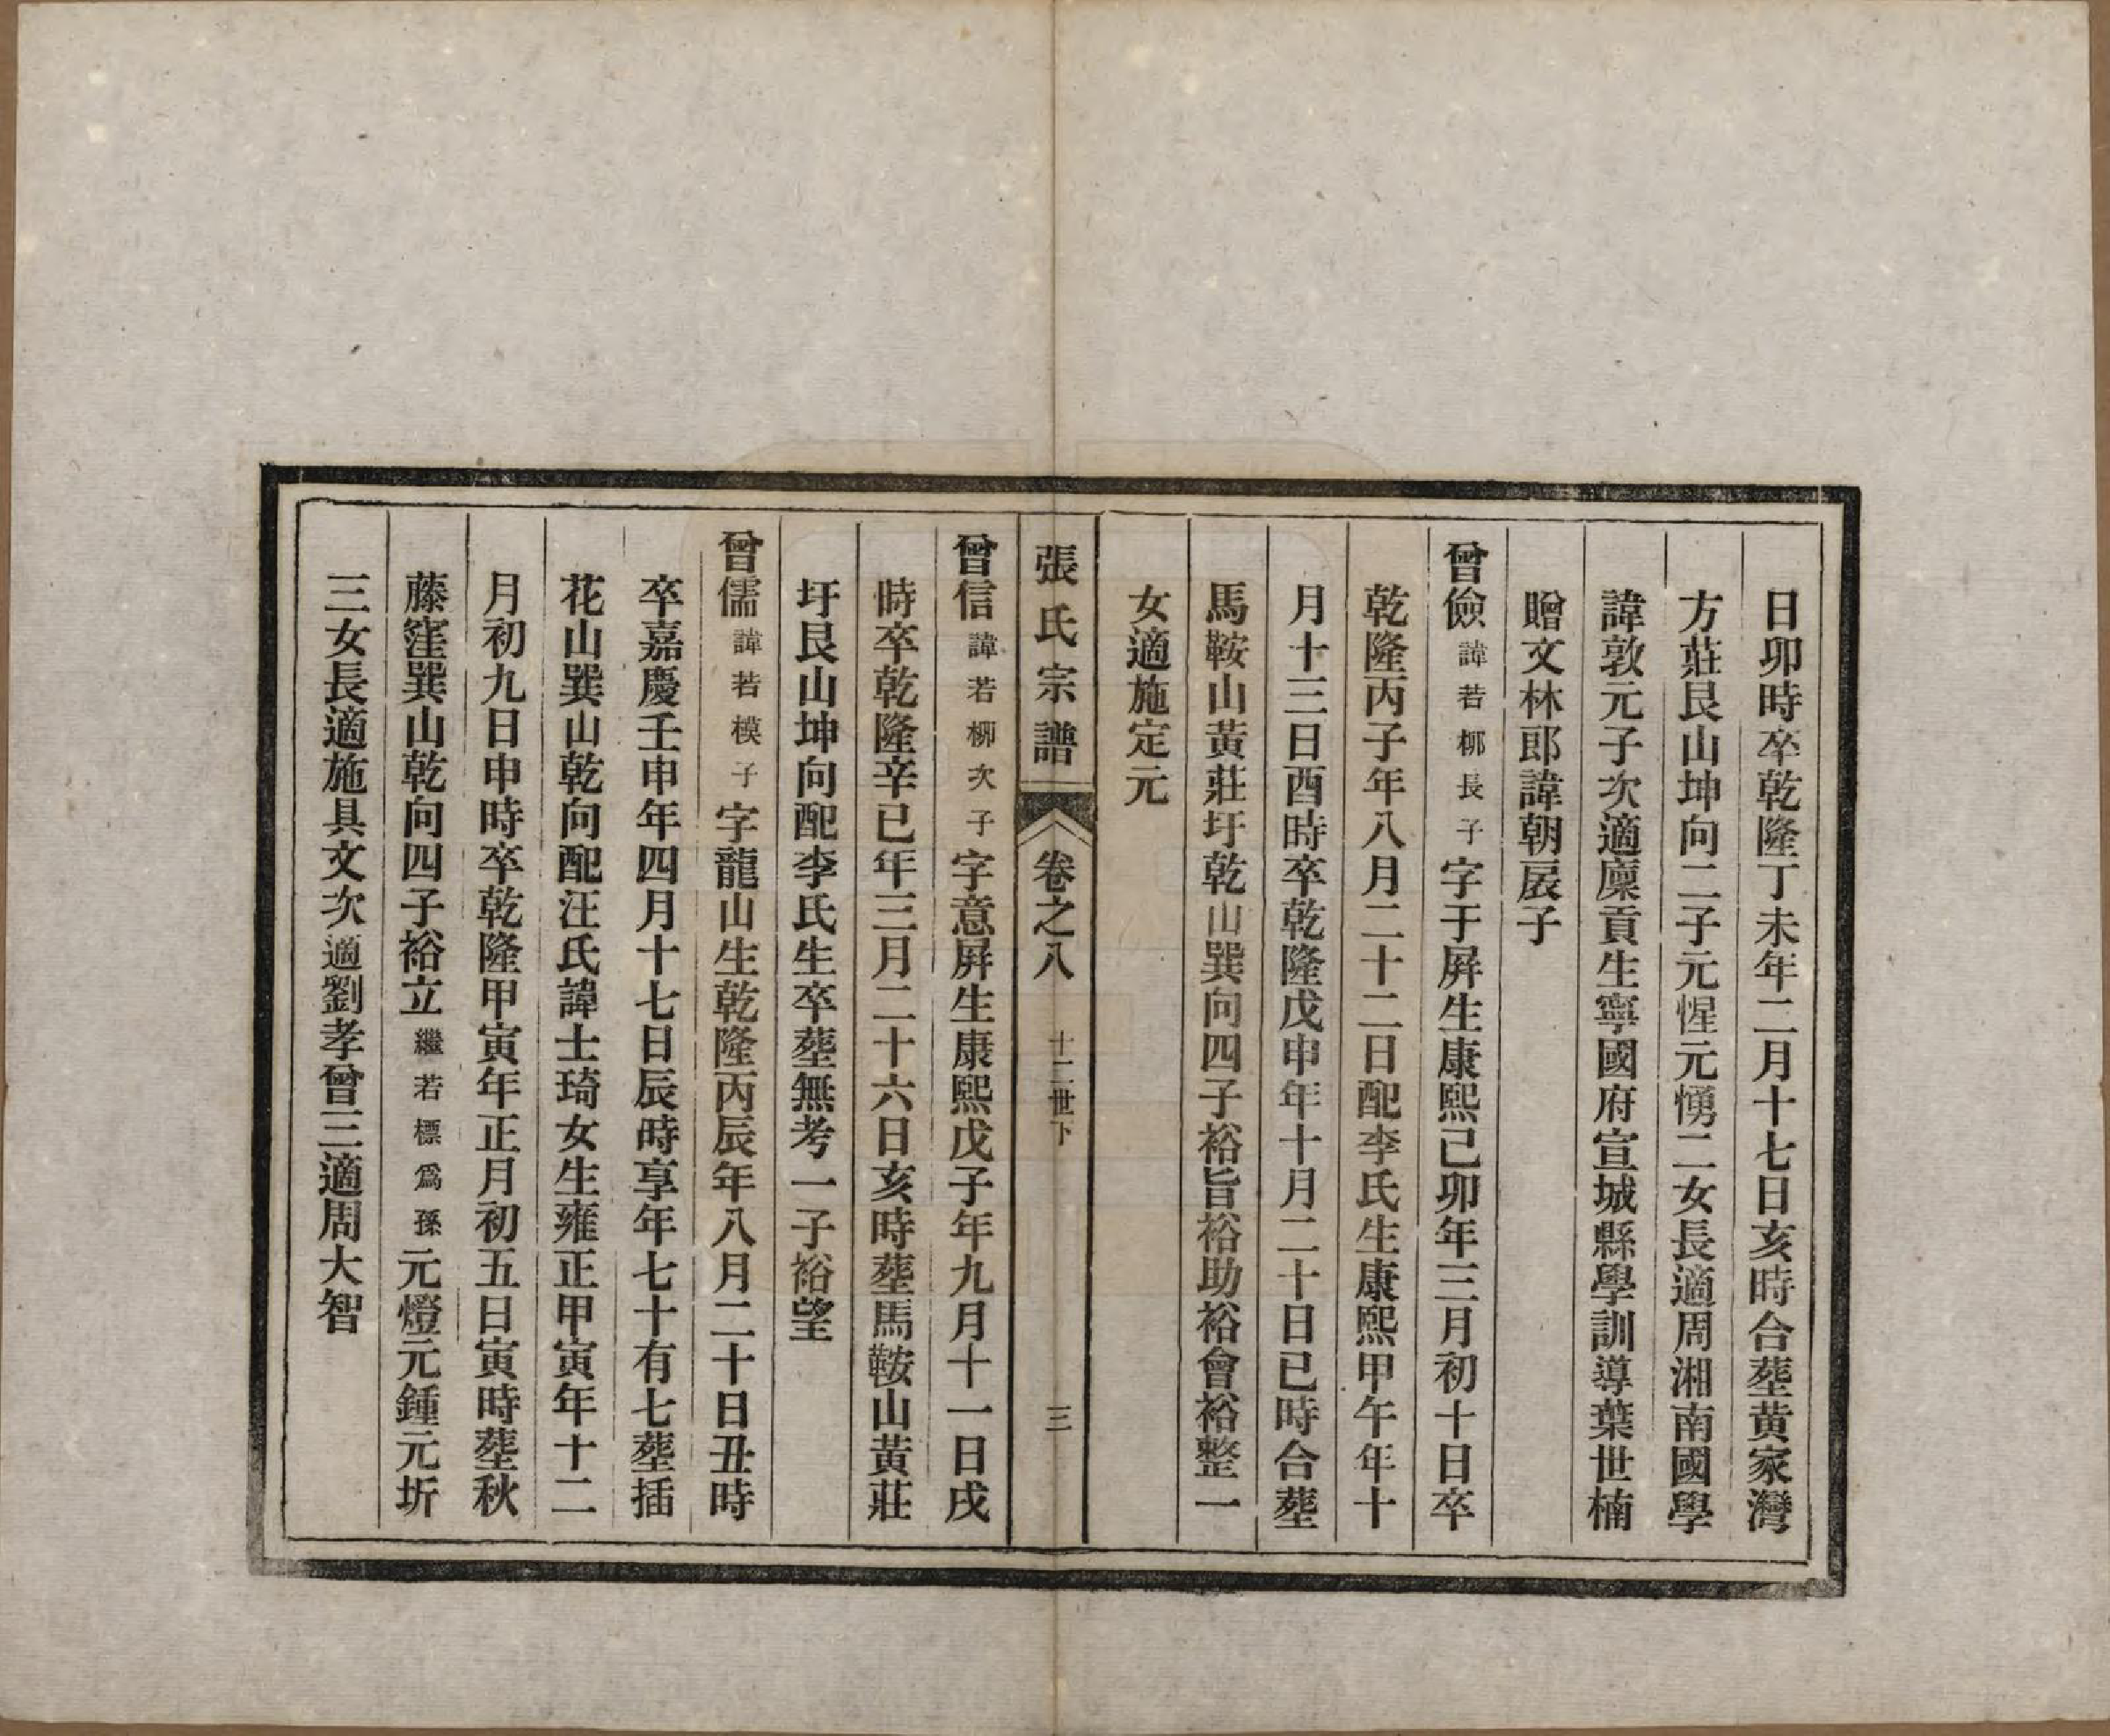 日卯時卒乾隆丁未年二月十七日亥時合塟黄家灣
方莊艮山坤向二子元惺元愑二女長適周湘南國學
諱敦元子次適廩貢生寧國府宣城縣學訓導葉世楠
贈文林郎諱朝扆子
曾儉諱若梛長子字于屏生康熙己卯年三月初十日卒
乾隆丙子年八月二十二日配李氏生康熙甲午年十
月十三日酉時卒乾隆戊申年十月二十日已時合塟
馬鞍山黃莊圩乾山巽向四子裕旨裕助裕會裕整一
女適施定元
張氏宗譜 卷之八 十二世下 三
曾信諱若梛次子字意屏生康熙戊子年九月十一日戌
時卒乾隆辛已年三月二十六日亥時塟馬鞍山黃莊
圩艮山坤向配李氏生卒塟無考一子裕望
曾儒諱若模子字龍山生乾隆丙辰年八月二十日丑時
卒嘉慶壬申年四月十七日辰時享年七十有七塟插
花山巽山乾向配汪氏諱士琦女生雍正甲寅年十二
月初九日申時卒乾隆甲寅年正月初五日寅時塟秋
藤窪巽山乾向四子裕立繼若標爲孫元燈元鍾元圻
三女長適施具文次適劉孝曾三適周大智